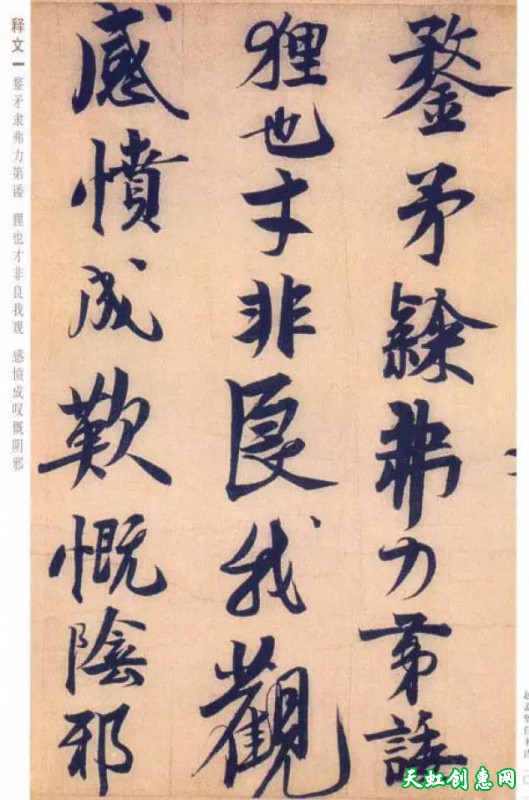 鍪矛隸弗力第諉
狸也才非良我觀
感憤成歎慨陰邪
释文 鍪矛隶弗力第诿 狸也才非良我观 感愤成叹慨阴邪
天虹创意网